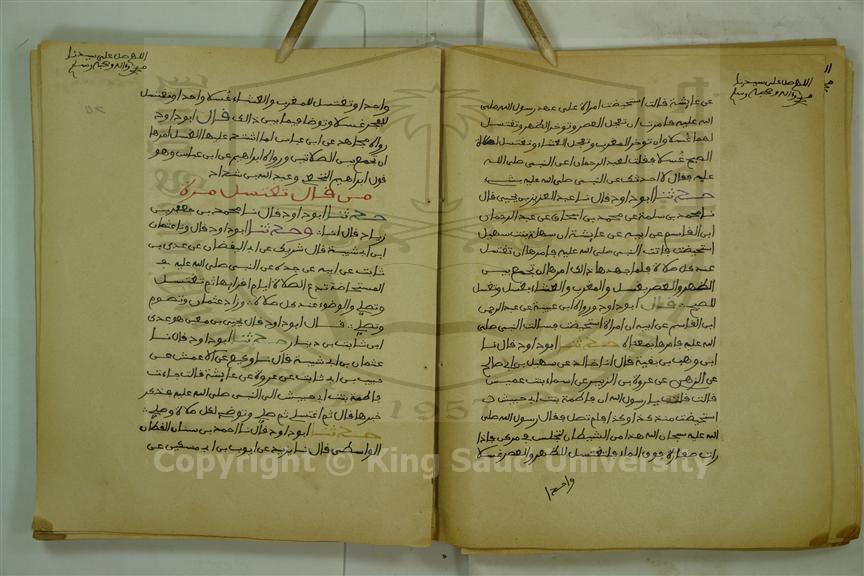 اللهم صل على سيدنا
محمد واله وصحبه وسلم
عن عايشة قالت استحيضت امراة على عهد رسول الله صلى
الله عليه فامرت ان تعجل العصر وتوخر الظهر وتغتسل
لهما غسلا وان توخر المغرب وتعجل العشاء وتغتسل لهما
الصبح غسلا فقلت لعبد الرحمان اعن النبي صلى الله
عليه فقال لا احدثك عن النبي صلى الله عليه بشيء
حدثنا ابو داود قال نا عبد العزيز بن يحيى قال
نا محمد بن سلمة عن محمد بن اسحاق عن عبد الرحمان
ابن القاسم عن ابيه عن عايشة ان سهلة بنت سهيل
استحيضت فاتت النبي صلى الله عليه فامرها ان تغتسل
عند كل صلاة فلما جهدها ذالك امرها ان تجمع بين
الظهر والعصر بغسل والمغرب والعشاء بغسل وتغتسل
للصبح قال ابو داود ورواه ابن عيينة عن عبد الرحمن
ابن القاسم عن ابيه ان امراة استحيضت فسالت النبي صلى
الله عليه فامرها بمعناه حدثنا ابو داود قال نا
ابن وهب بن بقية قال انا خالد عن سهيل بن ابي صالح
عن الزهري عن عروة بن الزبير عن اسماء بنت عميس
قالت قلت يا رسول الله ان فاطمة بنت ابي حبيش
استحيضت منذ كذا وكذا فلم تصل فقال رسول الله صلى
الله عليه سبحان الله هذا من الشيطان لتجلس في مركن فاذا
رات صفارة فوق الماء فلتغتسل للظهر والعصر غسلا
واحدا
اللهم صل على سيدنا
محمد واله وصحبه وسلم
واحدا وتغتسل للمغرب والعشاء غسلا واحدا وتغتسل
للفجر غسلا وتوضا فيما بين ذالك قال ابو داود
رواه مجاهد عن ابن عباس لما اشتد عليها الغسل امرها
ان تجمع بين الصلاتين ورواه ابراهيم عن ابن عباس وهو
قول ابراهيم النخعي وعبد الله بن شداد
من قال تغتسل مرة
حدثنا ابو داود قال نا محمد بن جعفر بن
زياد قال انا وحدثنا ابو داود قال ونا عثمان
ابن ابي شيبة قال شريك عن ابي اليقظان عن عدي بن
ثابت عن ابيه عن جده عن النبي صلى الله عليه في
المستحاضة تدع الصلاة ايام اقرايها ثم تغتسل
وتصلي والوضوء عند كل صلاة زاد عثمان وتصوم
وتصلي قال ابو داود قال يحيى بن معين هو عدي
ابن ثابت بن دينار حدثنا ابو داود قال نا
عثمان بن ابي شيبة قال نا وكيع عن الاعمش عن
حبيب بن ابي ثابت عن عروة عن عايشة قالت جاءت
فاطمة بنت ابي حبيش الى النبي صلى الله عليه فذكر
خبرها قال ثم اغتسلي ثم توضئي لكل صلاة وصلي
حدثنا ابو داود قال نا احمد بن سنان القطان
الواسطي قال نا يزيد عن ايوب بن ابي مسكين عن
1957
Copyright © King Saud University